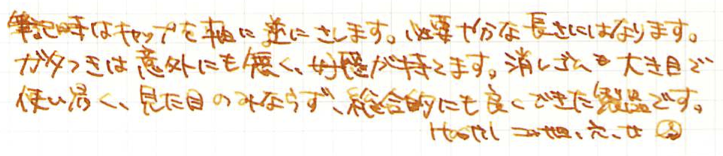 筆記時はキャップを軸に逆にさします。必要十分な長さにはなります。
ガタつきは意外にも無く、好感が持てます。消しゴムも大き目で
使い易く、見た目のみならず、総合的にも良くできた製品です。